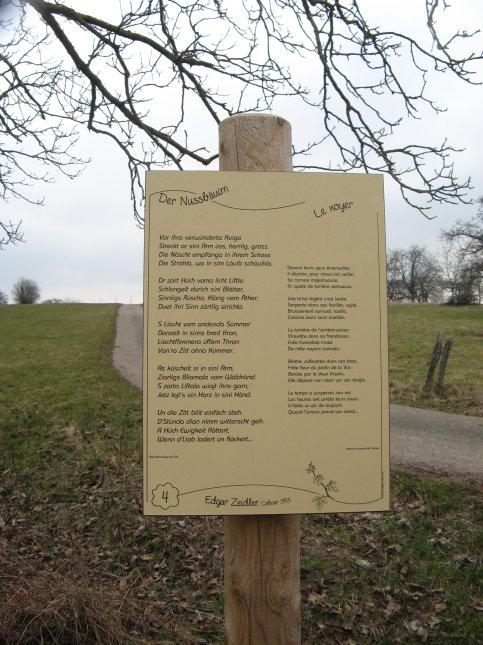 Der Nussbaum
Le noyer
Vor ihro verwunderta Auiga
Streckt ar sini Ärm üss, herrlig, gross.
Die Nàscht empfànga in ihrem Schoss
Die Stràhla, wo in sim Lauib schàuikla.
Dr zàrt Hüch voma licht Liftla
Schlangelt durich sini Blätter,
Sinnligs Rüscha, Klàng vom Äther,
Duet ihri Sinn zärtlig strichla.
S Liacht vom andenda Summer
Dànzelt in sinra breit Kron,
Liachtflimmera üffem Thron
Von'ra Zitt ohna Kummer.
As küschelt si in sini Ärm,
Ziarligs Bliamala vom Wàldrànd.
S zàrta Liftala wiajt ihra gàrn,
Jetz lajt's sin Harz in sini Hànd.
Un die Zitt blibt eifàch steh.
D'Stunda dian nimm witterscht geh.
A Hüch Ewigkeit flàttert,
Wenn d'Liab lodert un flàckert...
Devant leurs yeux émerveillés
Il déploie, pour mieux les veiller,
Sa ramure majestueuse,
En quête de lumière vertueuse.
Une brise légère s'est levée,
Serpente dans ses feuilles, agile,
Bruissement sensuel, tactile,
Caresse leurs sens éveillés.
La lumière de l'arrière-saison
Virevolte dans sa frondaison,
Folle farandole irisée
De mille rayons tamisés.
Blottie, calfeutrée dans ses bras,
Frêle fleur du jardin de la Vie
Bercée par le doux friselis,
Elle dépose son cœur sur ses doigts.
Le temps a suspendu son vol,
Les heures ont arrêté leurs cours.
Il flotte un air de toujours
Quand l'amour prend son envol...
4
Edgar Zeidler, Colmar 1953